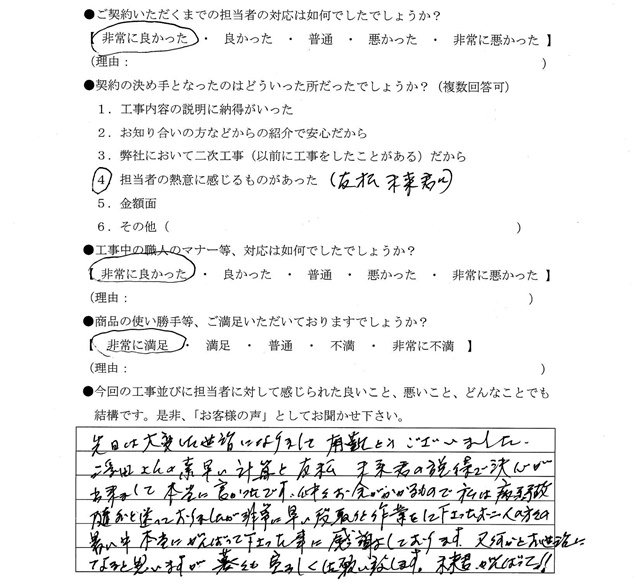 ●ご契約いただくまでの担当者の対応は如何でしたでしょうか？
【 非常に良かった ・ 良かった ・ 普通 ・ 悪かった ・ 非常に悪かった 】
（理由： ）
●契約の決め手となったのはどういった所だったでしょうか？（複数回答可）
１．工事内容の説明に納得がいった
２．お知り合いの方などからの紹介で安心だから
３．弊社において二次工事（以前に工事をしたことがある）だから
４ 担当者の熱意に感じるものがあった（友松 未来君に）
５．金額面
６．その他（ ）
●工事中の職人のマナー等、対応は如何でしたでしょうか？
【 非常に良かった ・ 良かった ・ 普通 ・ 悪かった ・ 非常に悪かった 】
（理由： ）
●商品の使い勝手等、ご満足いただいておりますでしょうか？
【 非常に満足 ・ 満足 ・ 普通 ・ 不満 ・ 非常に不満 】
（理由： ）
●今回の工事並びに担当者に対して感じられた良いこと、悪いこと、どんなことでも
結構です。是非、「お客様の声」としてお聞かせ下さい。
先日は大変お世話になりまして有難とうございました。
さんの素早い計算と友松 未来君の説得で決心が
出来まして本当に良かったです。お金がかかるので私は
随分と迷っておりましたが非常に早い段取りと作業をして下さったお二人の方々の
暑い中本当にがんばって下さった事に感謝しております。又何かとお世話に
なると思いますが 宜しくお願い致します。未来君がんばって!!